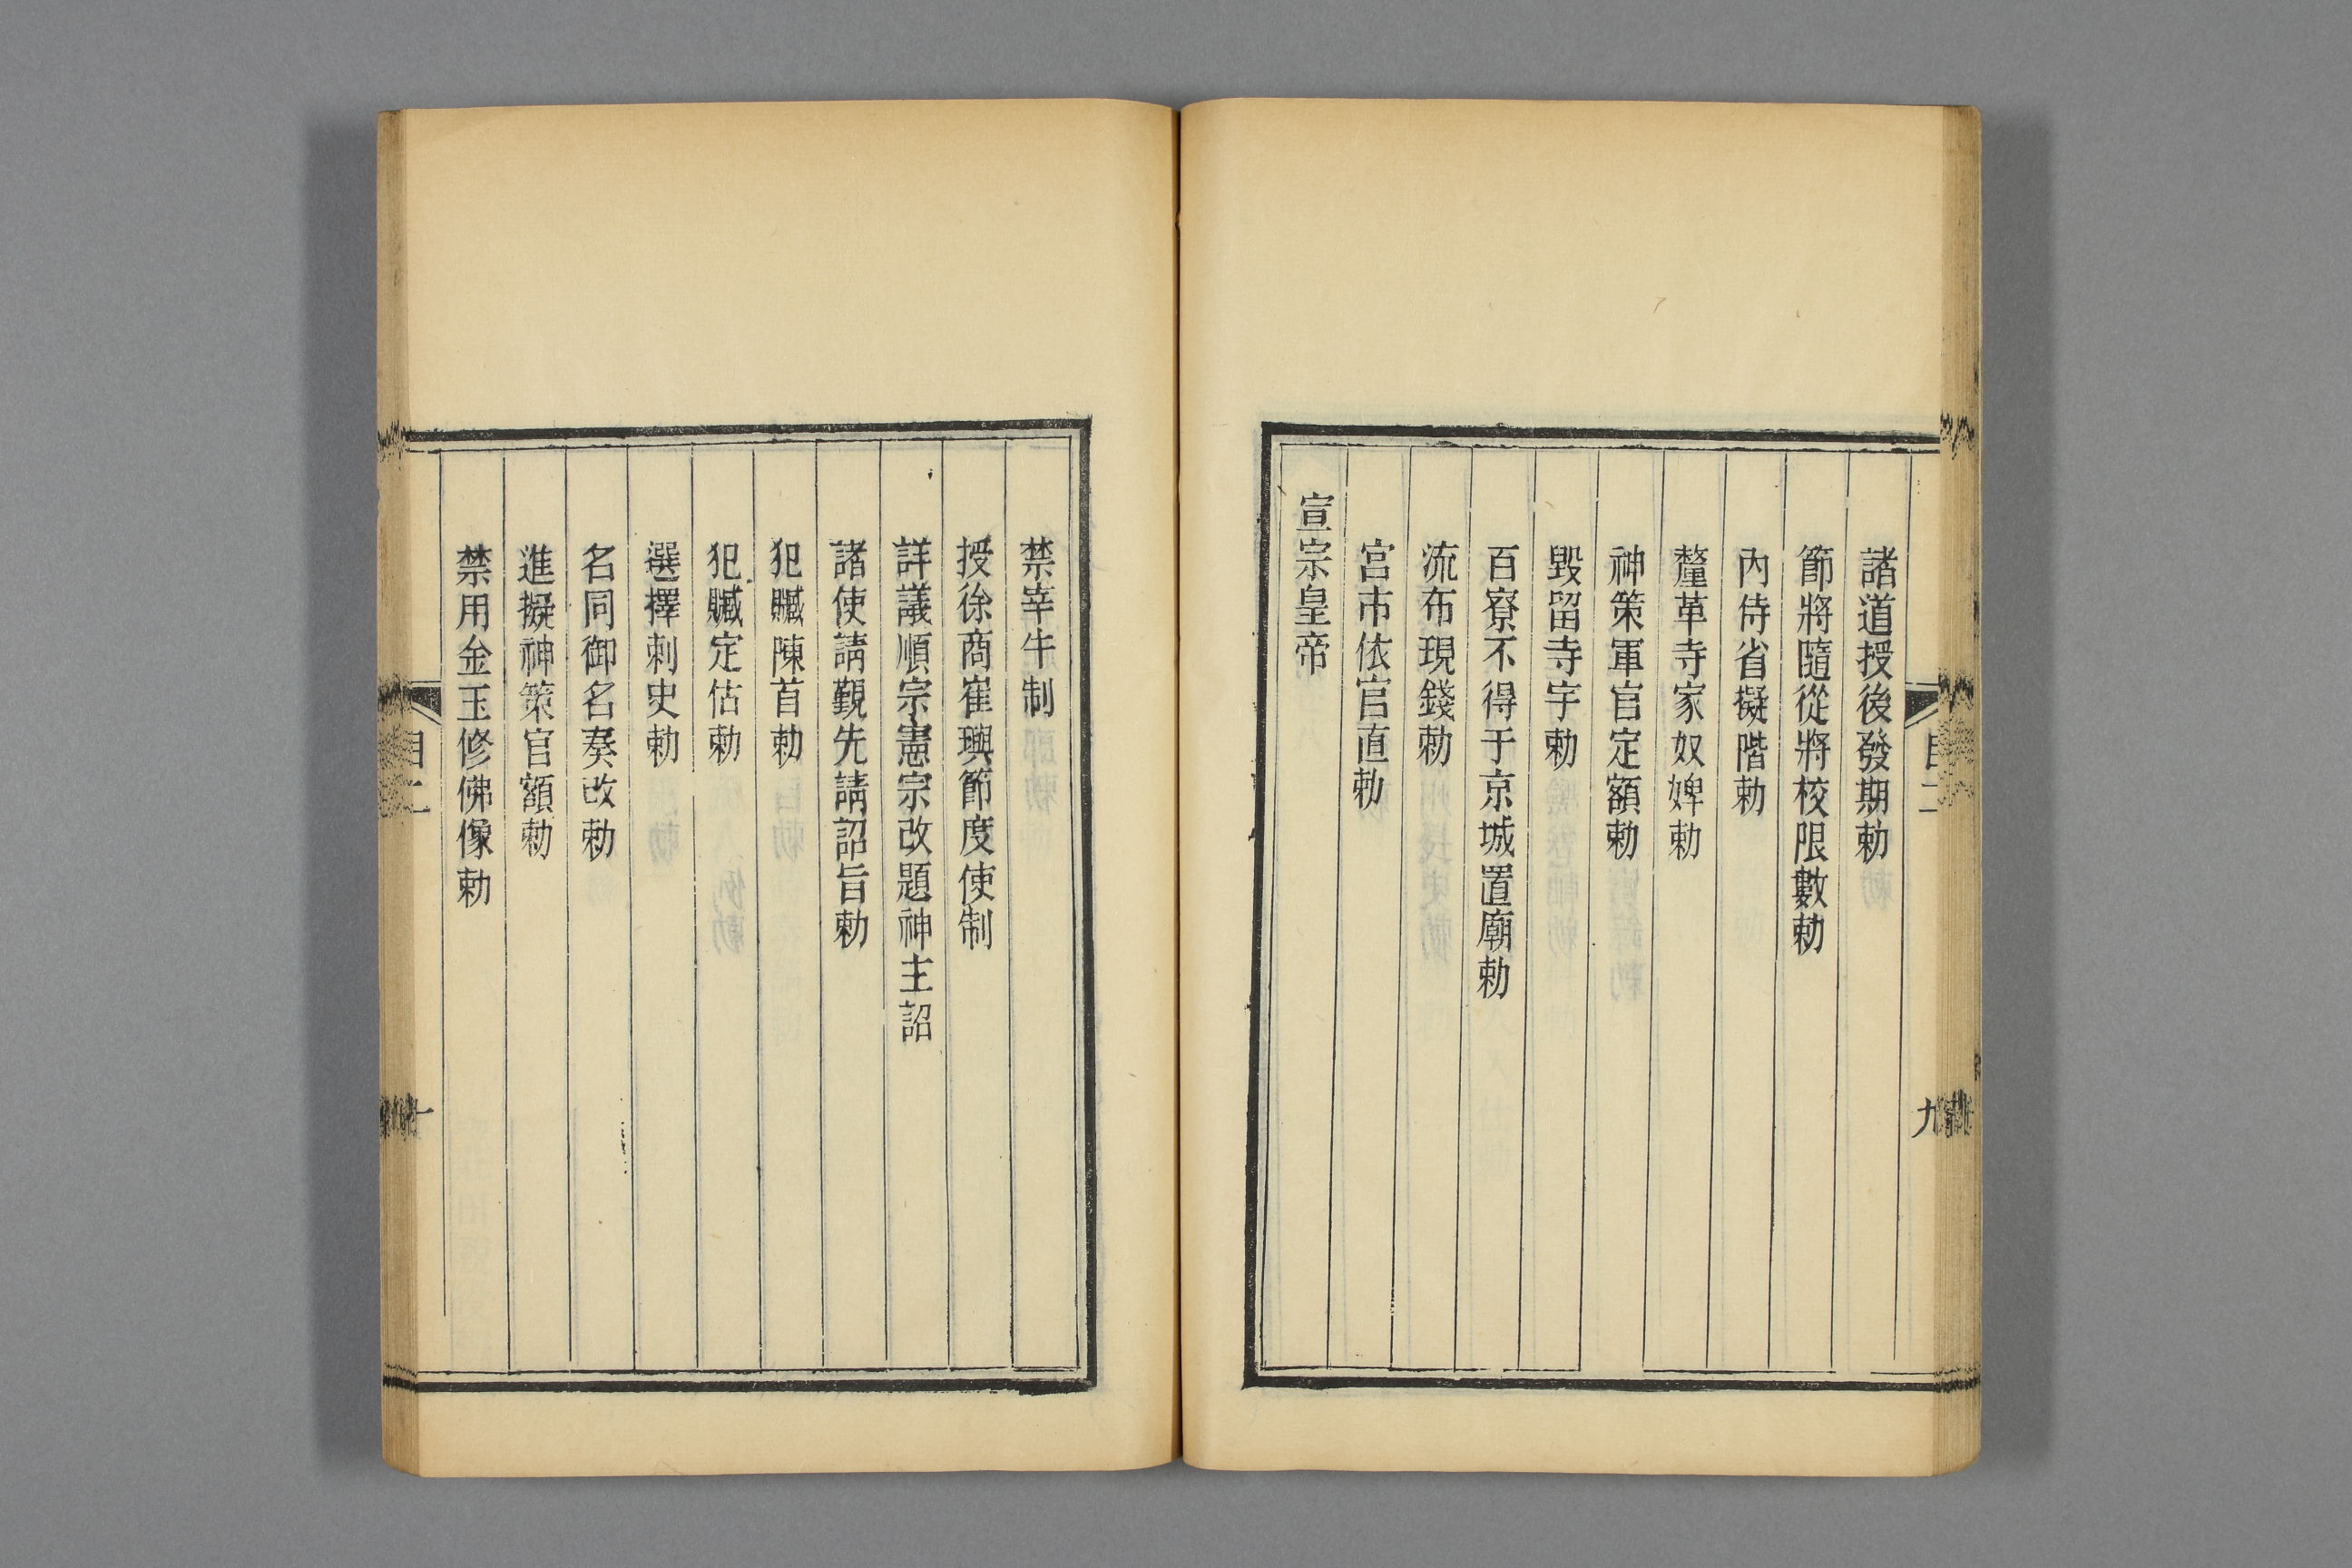 目二
九
諸道授後發期勅
節將隨從將校限數勅
內侍省擬階勅
釐革寺家奴婢勅
神策軍官定額勅
毀留寺宇勅
百寮不得于京城置廟勅
流布現錢勅
宮市依官直勅
宣宗皇帝
禁宰牛制
授徐商崔璵節度使制
詳議順宗憲宗改題神主詔
諸使請覲先請詔旨勅
犯贓陳首勅
犯贓定估勅
選擇刺史勅
名同御名奏改勅
進擬神策官額勅
禁用金玉修佛像勅
目二
十